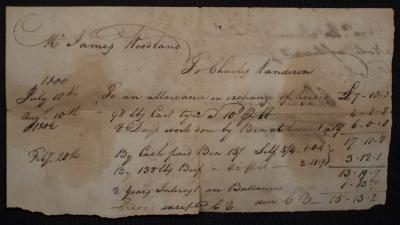 Mr James Woodland
To Charles Vanderen
1800
July 10th To an allowance in exchange of £7-13-
Aug. 10th 98 lby Cart tyre 10d
1802 8 Days work done by Ben at 6-0-0
17-11-8
Feby. 20th By Cash paid Ben 15/ Self 5/4 1-0-4
By 138 lby Beef 2-11-9 3-12-1
13-19-7
2 Years Interest on Ballance 1-13-7
Errors excepted due 15-13-2